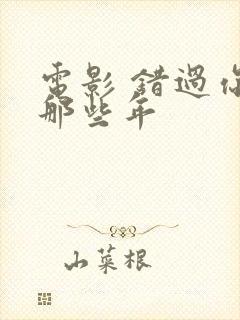 電影 錯過你
那些年
山菜根